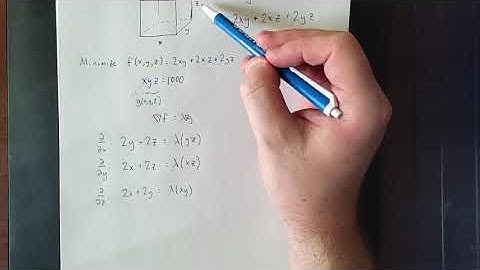 z
2xy + 2xz + 2yz
y
x
Minimize f(x,y,z) = 2xy + 2xz + 2yz
xyz = 1000
g(x,y,z)
∇f = λg
∂/∂x: 2y + 2z = λ(yz)
∂/∂y: 2x + 2z = λ(xz)
∂/∂z: 2x + 2y = λ(xy)